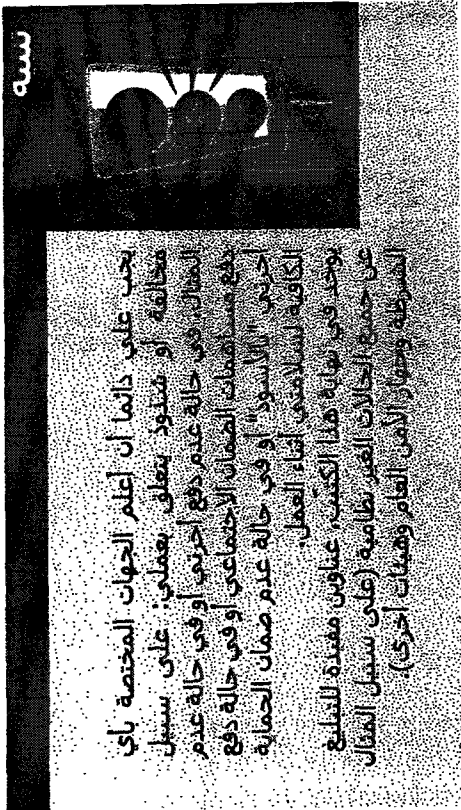 تنبيه
يجب علي دائما أن أعلم الجهات المختصة بأي
مخالفة أو شذوذ يتعلق بعملي: على سبيل
المثال، في حالة عدم دفع أجرتي أو في حالة عدم
دفع مساهمات الضمان الاجتماعي أو في حالة دفع
أجرتي "بالأسود" أو في حالة عدم ضمان الحماية
الكافية لسلامتي أثناء العمل.
يوجد في نهاية هذا الكتيب، عناوين مفيدة للتبليغ
عن جميع الحالات الغير نظامية (على سبيل المثال
الشرطة وجهاز الأمن العام وهيئات أخرى).